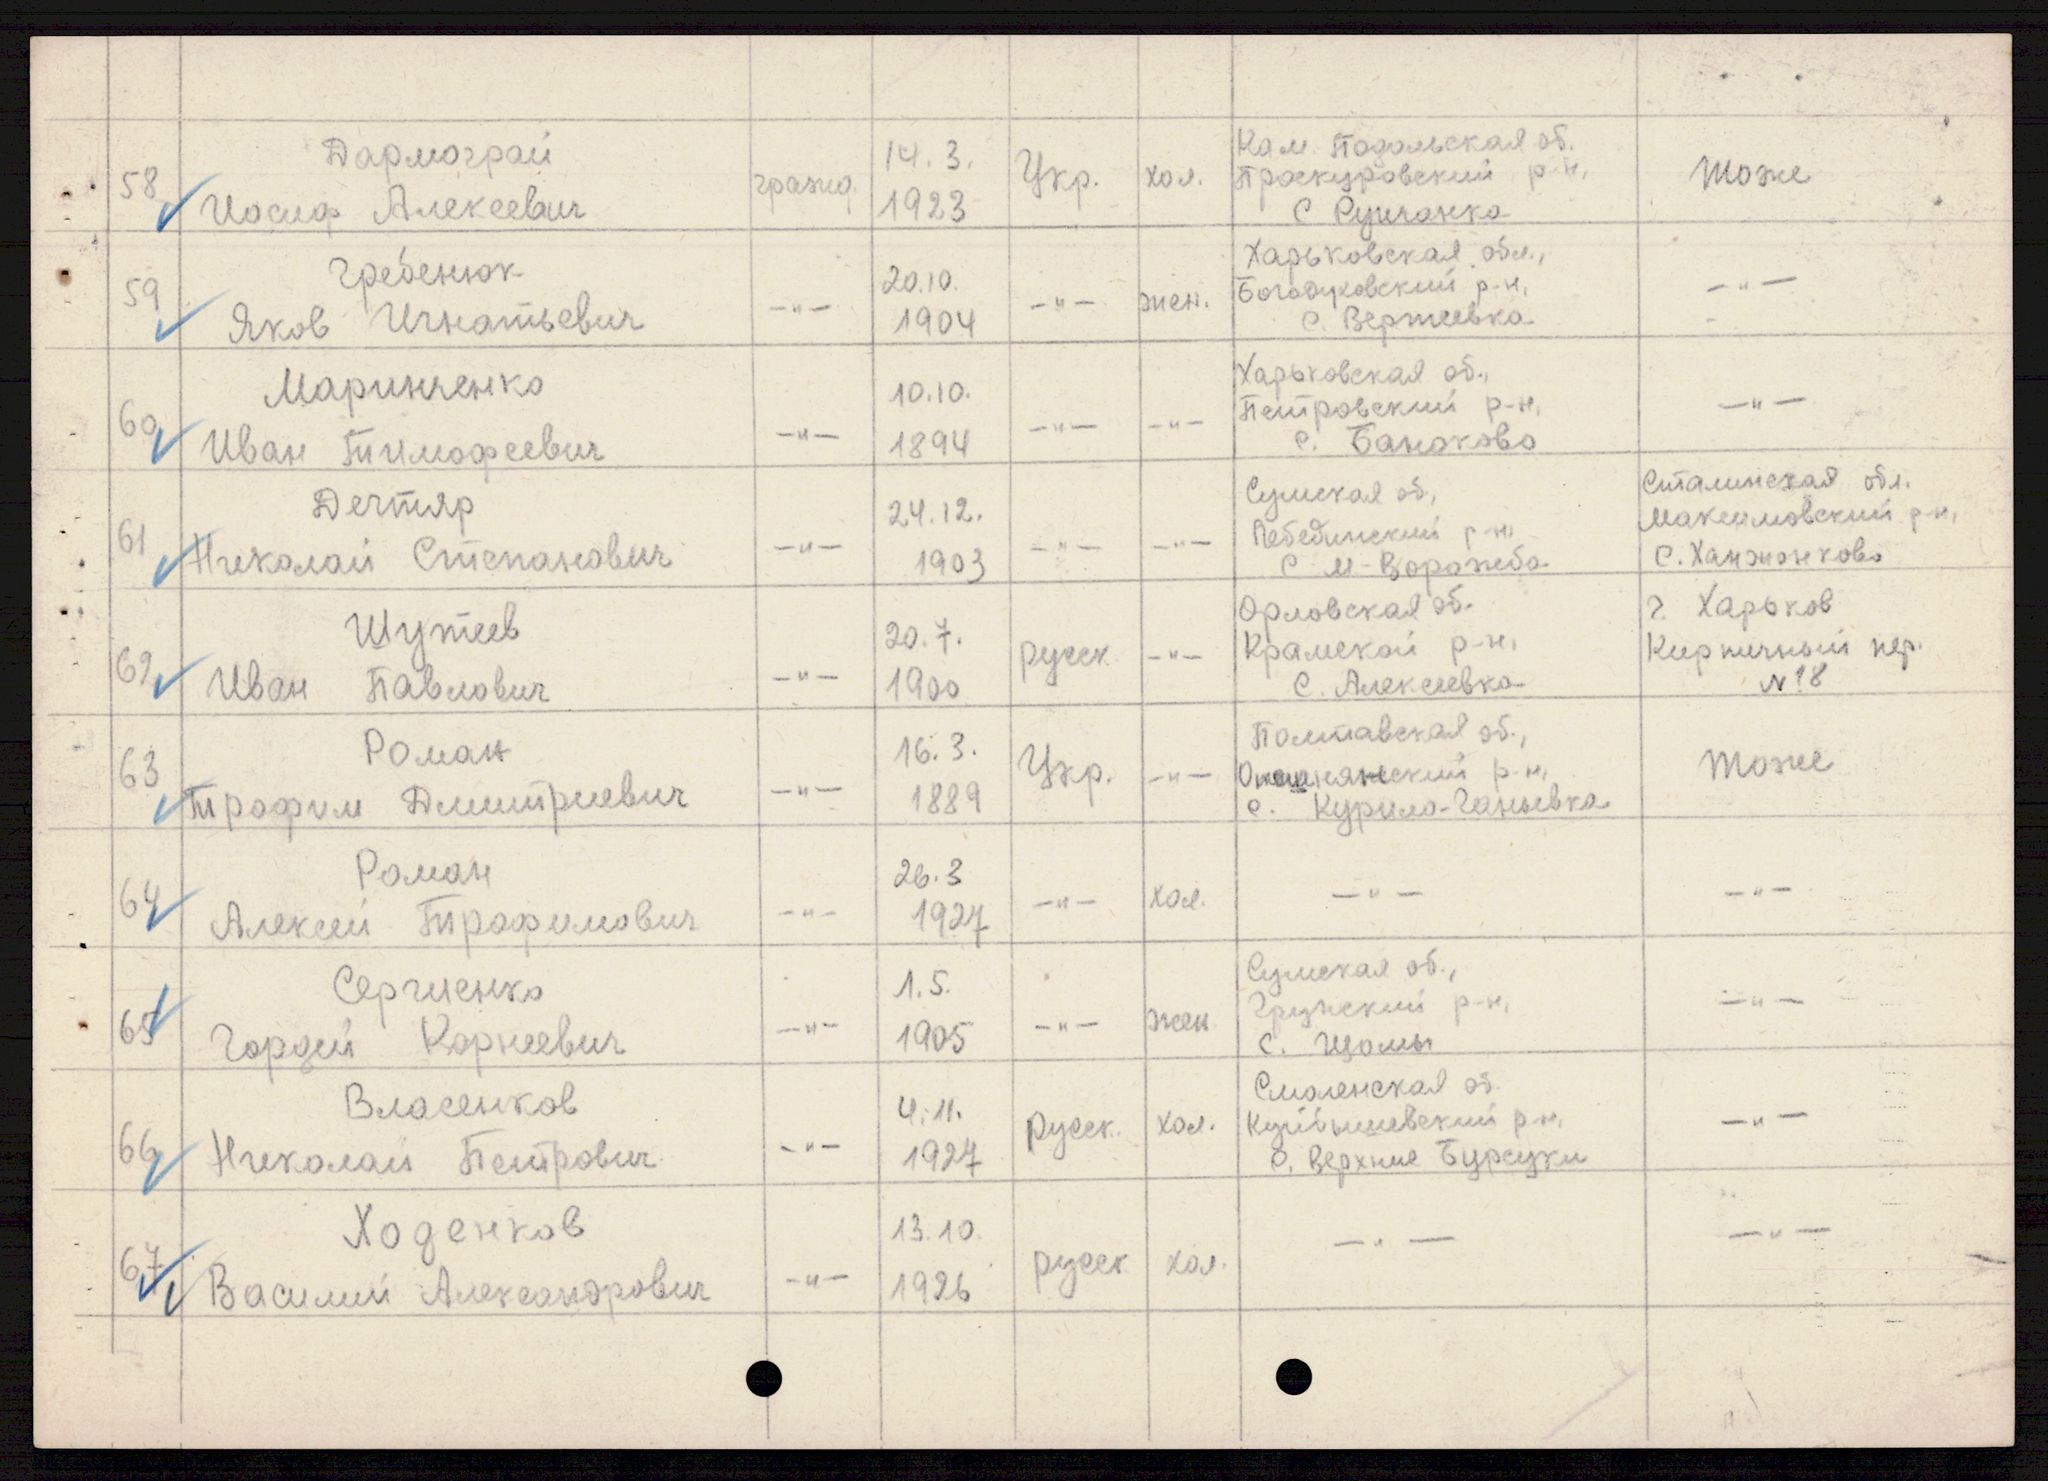 58 Дармограй гражд. 14.3. Укр. хол. Кам. Подольская об. Тоже
Иосиф Алексеевич 1923 Проскуровский р-н,
с Ружичанка
59 Гребенюк —"— 20.10. —"— жен. Харьковская обл., —"—
Яков Игнатьевич 1904 Богодуховский р-н,
с. Вертеевка
60 Маринченко —"— 10.10. —"— —"— Харьковская об., —"—
Иван Тимофеевич 1894 Петровский р-н,
с.
61 Дегтяр —"— 24.12. —"— —"— Сумская об, Сталинская обл.
Николай Степанович 1903 Лебединский р-н, Максимовский р-н,
с М-Ворожба с. Ханжонково
62 Шутеев —"— 20.7. русск —"— Орловская об. г. Харьков
Иван Павлович 1900 Крамской р-н, Кирпичный пер.
с. Алексеевка №18
63 Роман —"— 16.3. Укр. —"— Полтавская об., Тоже
Трофим Дмитриевич 1889 р-н,
с. Курило-Ганьевка
64 Роман —"— 26.3 —"— хол. —"— —"—
Алексей Трофимович 1927
65 Сергиенко —"— 1.5. —"— жен Сумская об., —"—
Гордей Корнеевич 1905 Грунский р-н,
с. Щомы
66 Власенков —"— 4.11. русск. хол. Смоленская об. —"—
Николай Петрович 1927 Куйбышевский р-н,
с. Верхние Бурсуки
67 Ходенков —"— 13.10. русск хол. —"— —"—
Василий Александрович 1926